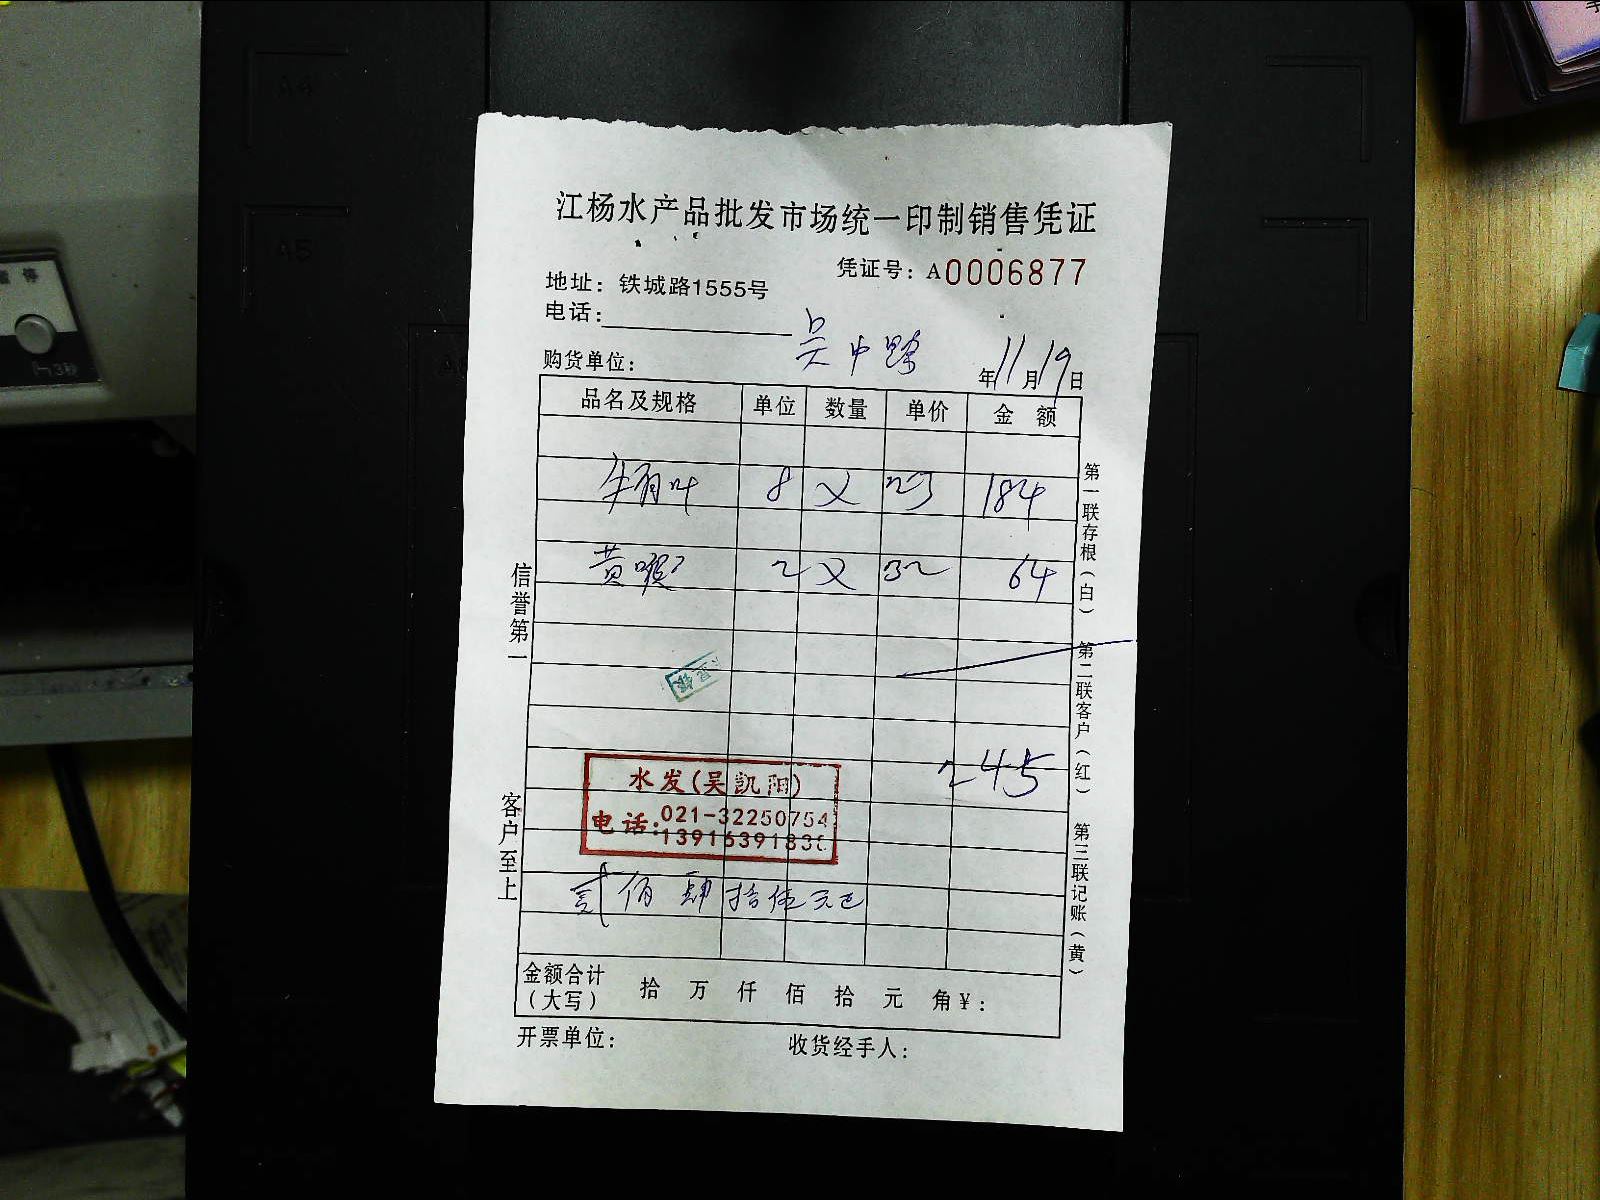 江杨水产品批发市场统一印制销售凭证
凭证号：A0006877
地址：铁城路1555号
电话：
吴中路
购货单位： 年11月19日
品名及规格 单位 数量 单价 金额
牛百叶 8 × 23 184
黄喉 2 × 32 64
245
水发(吴凯阳)
电话：021-32250754
1391639183
贰佰肆拾伍元正
金额合计（大写） 拾 万 仟 佰 拾 元 角 ¥：
开票单位： 收货经手人：
信誉第一 客户至上
第一联存根（白） 第二联客户（红） 第三联记账（黄）
A4
A5
停
3秒